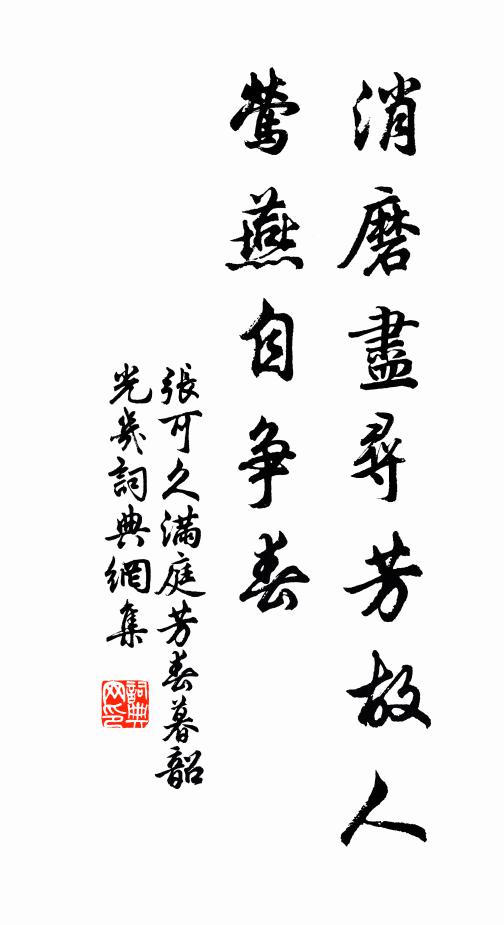 消磨盡尋芳故人
鶯燕自争春
張可久滿庭芳春暮韶
光幾詞典網集
詞典
网印